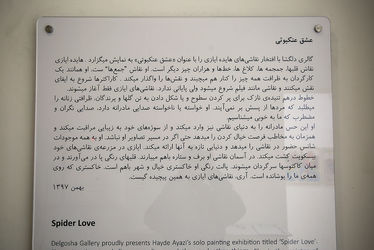 عشق عنکبوتی
گالری دلگشا با افتخار نقاشی‌های هایده ایازی را با عنوان «عشق عنکبوتی» به نمایش میگزارد. هایده ایازی
نقاش قلبها، جمجمه ها، کلاغ ها، خط‌ها و هزاران چیز دیگر است. او نقاش "جمع‌ها" ست. او همانند یک
کارگردان به ظرافت همه چیز را کنار هم میچیند و نقش‌ها را واگذار میکند. کاراکترها شروع به ایفای
نقش میکنند و نقاشی مانند فیلم شروع میشود ولی پایانی ندارد. نقاشی‌های ایازی فقط آغاز میشوند.
خطوط درهم تنیده‌ی نازک برای پر کردن سطوح و یا شکل دادن به تن گلها و پرندگان، ظرافتی زنانه را
میطلبد که مردها از پسش بر نمی‌آیند. او خواسته یا ناخواسته صدایی مادرانه دارد. صدایی نگران و
مضطرب که ما به خوبی میشناسیم.
او این حس مادرانه را به دنیای نقاشی نیز وارد میکند و از سوژه‌های خود به زیبایی مراقبت میکند و
همزمان به مخاطب فرصت خیال کردن را میدهد حتی اگر در مسیر تصاویر او نباشد. او به همه موجودات
شانس حضور در نقاشی را میدهد و دنیایی تازه به آنها ارائه میکند. هایده ایازی در مزرعه‌ی نقاشی‌های خود
بیسکویت کشت میکند. در آسمان نقاشی او برف و ستاره باهم میبارند. قلبهای رنگی پا در می‌آورند و در
میان کاکتوسها سرگردان میشوند. پالت رنگی او خاکستری خیال و شهر باهم است. خاکستری که روی
همه‌ی ما را پوشانده است. آری، نقاشی‌های ایازی به همین پیچیدگی ست.
بهمن ۱۳۹۷
Spider Love
Delgosha Gallery proudly presents Hayde Ayazi's solo painting exhibition titled 'Spider Love'.